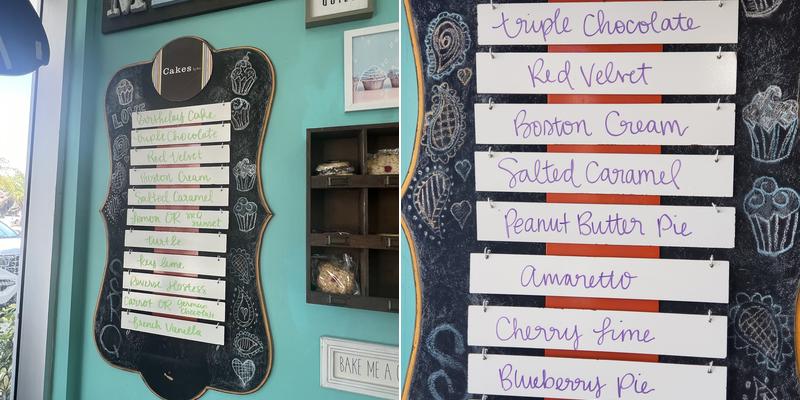 Cakes
LOVE
Birthday Cake
triple Chocolate
Red Velvet
Boston Cream
Salted Caramel
Lemon OR
sunset
turtle
Key Lime
Reverse Hostess
Carrot OR German Chocolate
French Vanilla
BAKE ME A
triple Chocolate
Red Velvet
Boston Cream
Salted Caramel
Peanut Butter Pie
Amaretto
Cherry Lime
Blueberry Pie